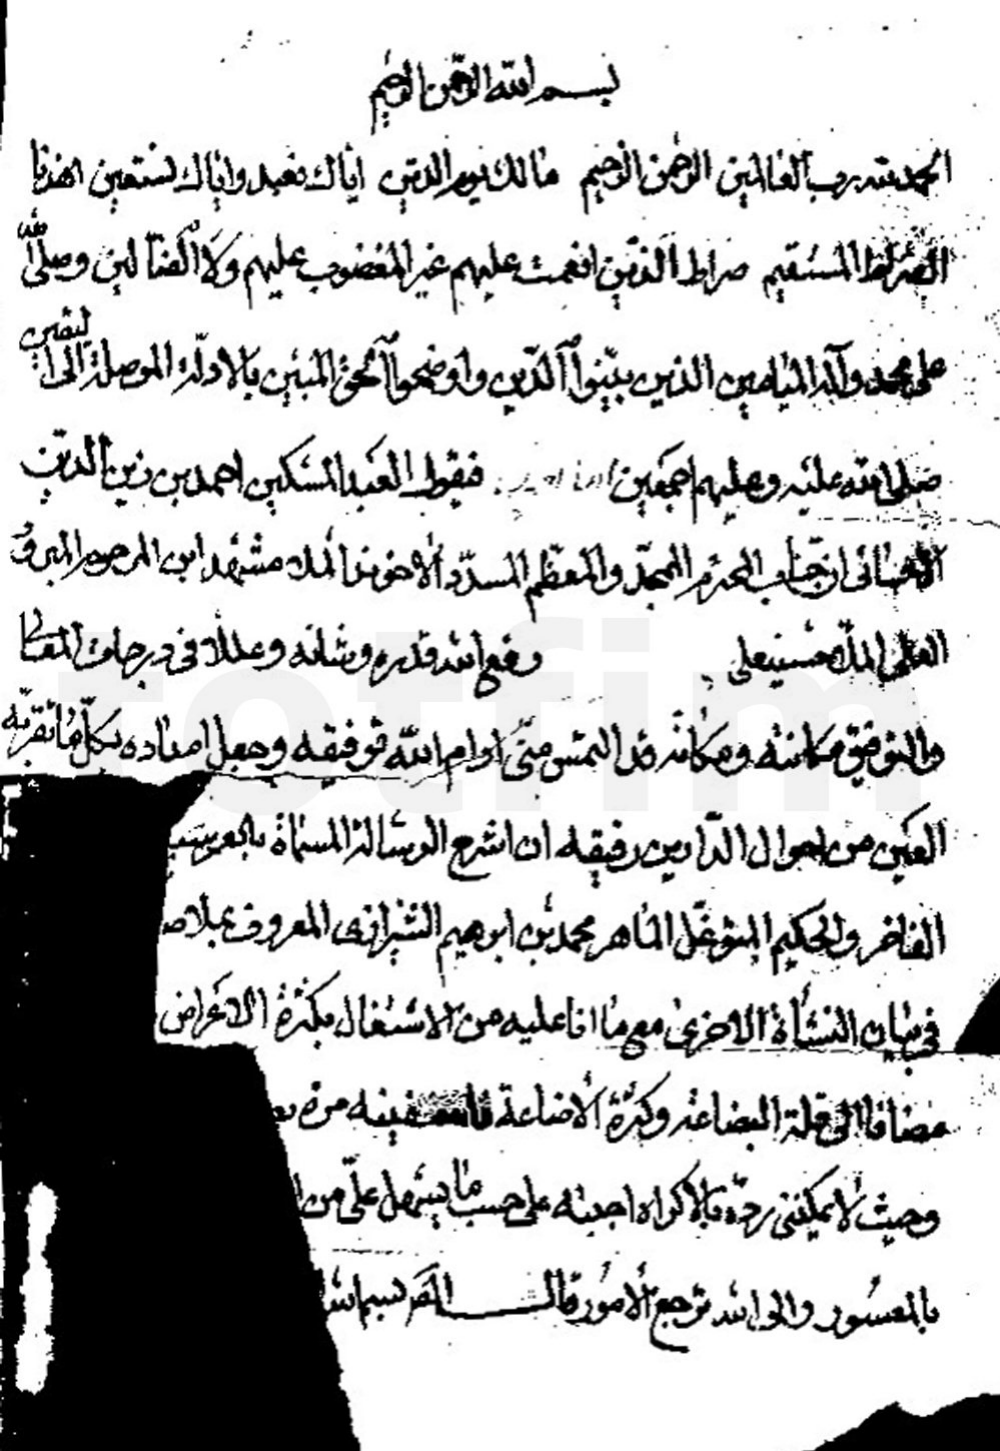 بسم الله الرحمن الرحيم
الحمد لله رب العالمين الرحمن الرحيم مالك يوم الدين اياك نعبد واياك نستعين اهدنا
الصراط المستقيم صراط الذين انعمت عليهم غير المغضوب عليهم ولا الضالين وصلى الله
على محمد وآله الميامين الذين بينوا الدين واوضحوا الحق المبين بالادلة الموصلة الى اليقين
صلى الله عليه وعليهم اجمعين فيقول العبد المسكين احمد بن زين الدين
الاحسائي ان جناب المحترم الممجد والمعظم المسدد الاخوند الملا مشهد ابن المرحوم المبرور
العلي الملا حسينعلي رفع الله قدره وشانه وعلا في درجات المعا
والتوفيق مكانته ومكانه قد التمس مني ادام الله توفيقه وجعل امداده بكل ما تقر به
العين من احوال الدارين رفيقه ان اشرح الرسالة المسماة بالعرشية
الفاخر والحكيم المتوغل الماهر محمد بن ابرهيم الشيرازي المعروف بملا صد
في بيان النشأة الاخرى مع ما انا عليه من الاشتغال بكثرة الاعراض
مضافا الى قلة البضاعة وكثرة الاضاعة مرة بعد
وحيث لا يمكنني رده بالاكراه اجبته على حسب ما يسهل علي من ا
بالمعسور والى الله ترجع الامور قال بسم الله
rotfim